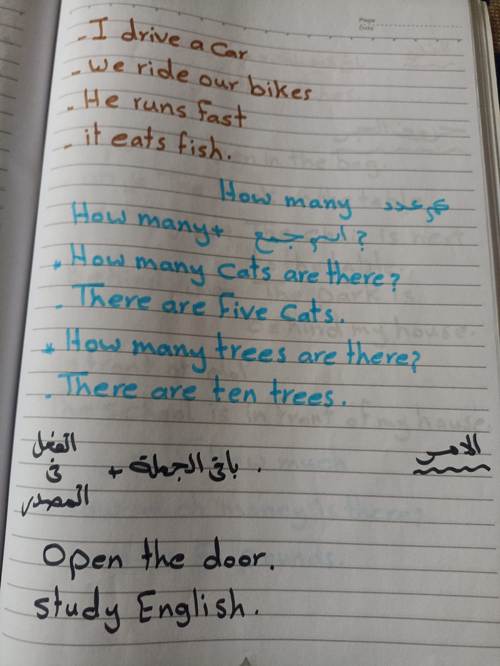 Page
Date
- I drive a car
- we ride our bikes
- He runs fast
- it eats fish.
How many كم عدد
How many + اسم جمع ?
* How many cats are there?
- There are five cats.
* How many trees are there?
- There are ten trees.
الأمر
الفعل في المصدر + باقى الجملة .
Open the door.
study English.